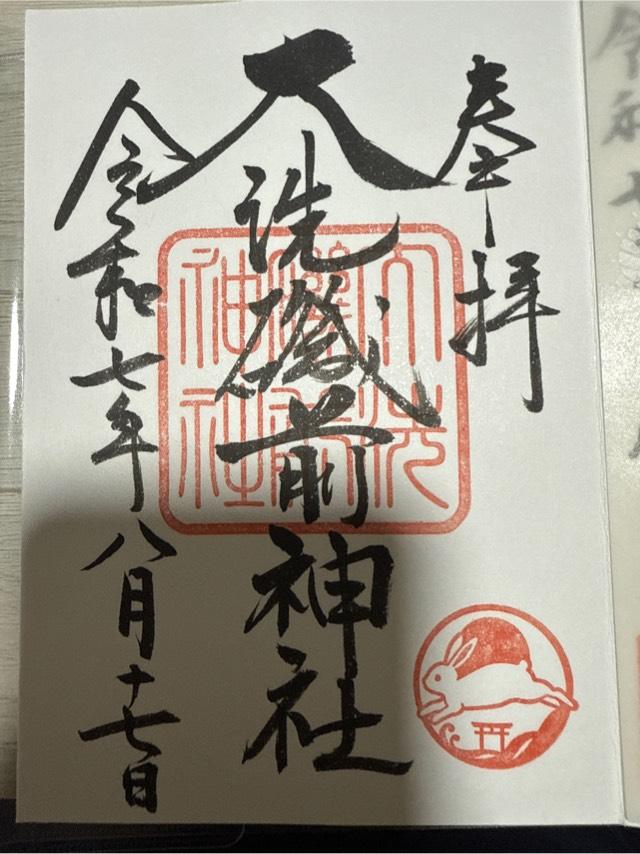 奉拝
大洗磯前神社
令和七年八月十七日
大洗
磯前
神社
令和七